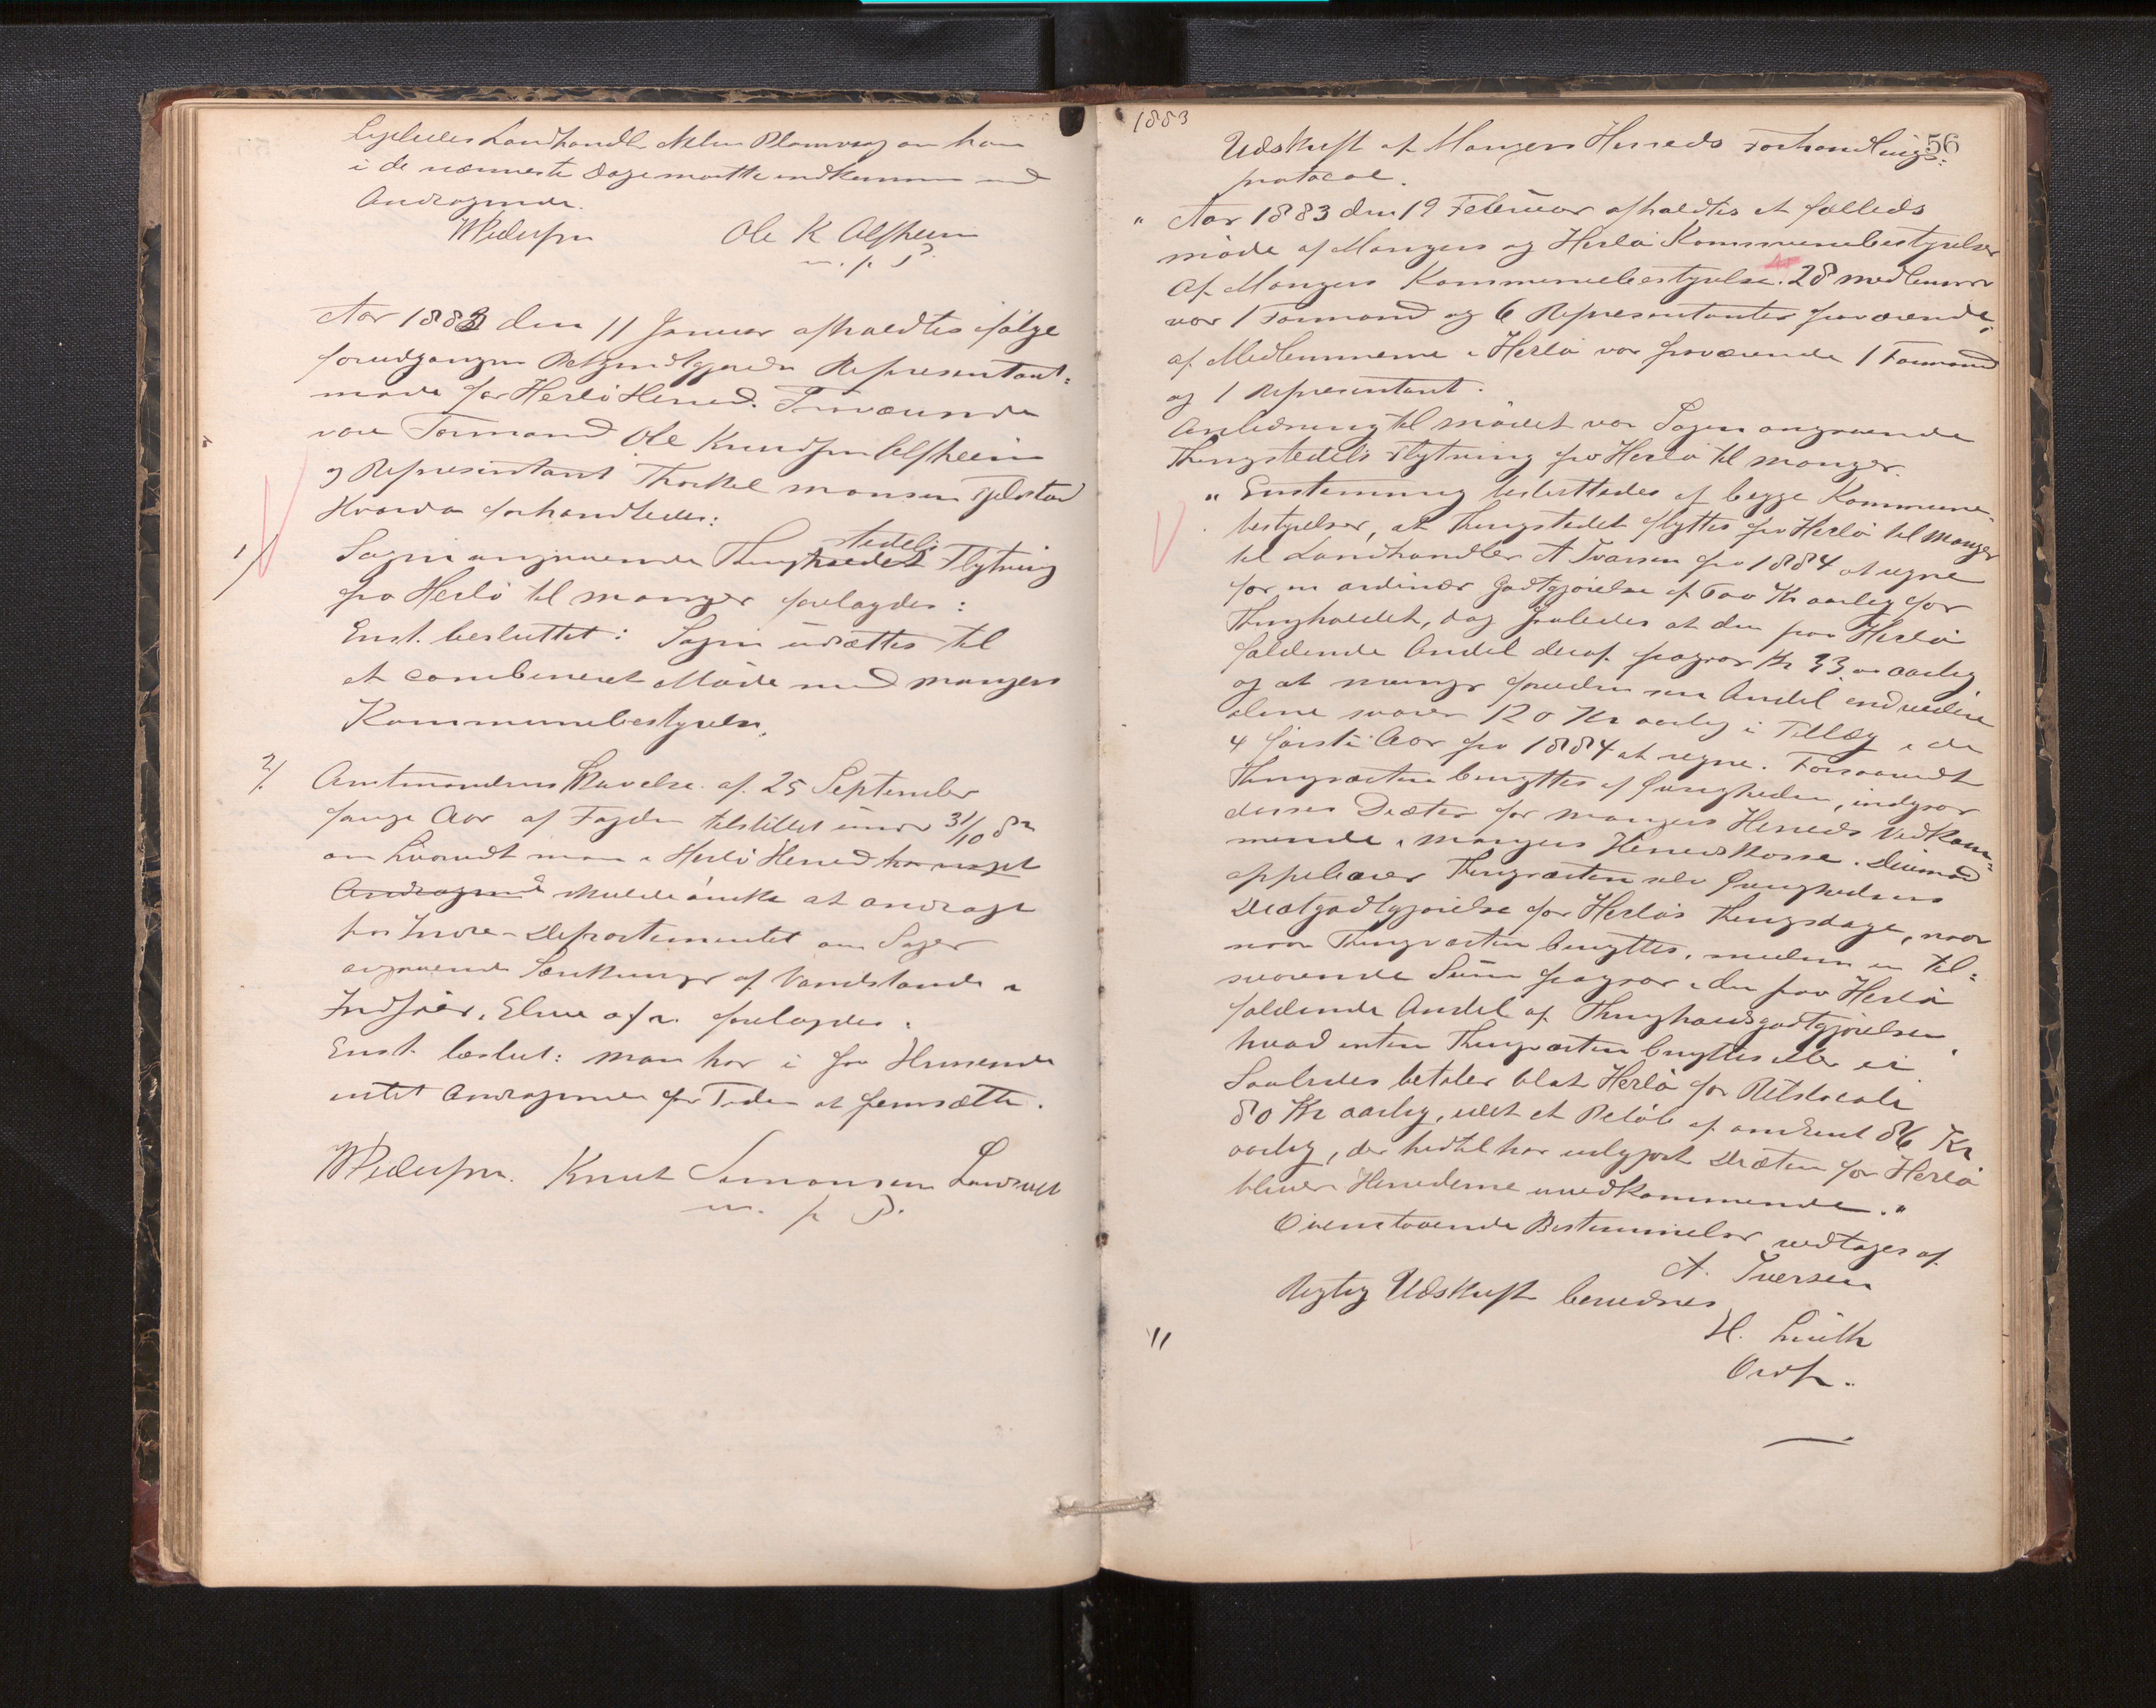 Ligeledes Landhandler Nelson Blomvaag om han
i de nærmeste Dage maatte indkomme med
Andragende.
WPedersen Ole K Alfheim
m. p. P.
Aar 1883 den 11 Januar afholdtes ifølge
forudgangen Bekjendtgjørelse Repræsentant-
møde for Herlø Herred. Tilstede
vare Formand Ole Knudsen Alfheim
og Repræsentant Thorkel Monsen
Hvorda forhandledes:
1/ Sagen angaaende Thingstedets Flytning
fra Herlø til Manger forelagdes:
Enst. besluttet: Sagen udsættes til
et combineret Møde med Mangers
Kommunebestyrelse.
2/ Amtmandens Skrivelse af 25 September
forrige Aar af Fogden tilstillet under 31/10 82
om hvorvidt man i Herlø Herred har noget
Andragende skulde ønske at andrage
for Indre-Departementet om Sager
angaaende Sænkninger af Vandstande i
Indsøer, Elve o s v. forelagdes.
Enst. beslut: Man har i saa Henseende
intet Andragende for Tiden at fremsætte.
WPedersen. Knut Simonsen Landsvik
m. p P.
1883
56
Udskrift af Mangers Herreds Forhandlings-
protocol.
" Aar 1883 den 19 Februar afholdtes et fælleds
møde af Mangers og Herlø Kommunebestyrelser
Af Mangers Kommunebestyrelses 28 medlemmer
var 1 Formand og 6 Repræsentanter fraværende,
af Medlemmerne i Herlø var fraværende 1 Formand
og 1 Representant.
Anledning til mødet var Sagen angaaende
Thingstedets Flytning fra Herlø til Manger.
" Enstemmig besluttedes af begge Kommune-
bestyrelser, at Thingstedet flyttes fra Herlø til Manger
til Landhandler A Iversen fra 1884 at regne
for en ordinær Godtgjørelse af 100 Kr aarlig for
Thingholdet, dog saaledes at den paa Herlø
faldende Andel deraf fragaar Kr 33,00 aarlig
og at Manger foruden sin Andel endvidere
alene svarer 120 Kr aarlig i Tillæg i de
4 første Aar fra 1884 at regne. Forsaavidt
Thingværten benyttes af Øvrigheden, indgaar
dennes Diæter for Mangers Herreds Vedkom-
mende i Mangers Herredskasse. Derimod
oppebærer Thingværten selv Øvrighedens
Diætgodtgjørelse for Herløs Thingdage, naar
naar Thingværten benyttes, medens en til-
svarende Sum fragaar i den paa Herlø
faldende Andel af Thingholdsgodtgjørelsen,
hvad enten Thingværten benyttes eller ei.
Saaledes betaler blot Herlø for Retslocale
80 Kr aarlig, idet et Beløb af omtrent 86 Kr
aarlig, der hidtil har udgjort Diæten for Herlø
bliver Herrederne uvedkommende."
Ovenstaaende Bestemmelser vedtages af
A. Iversen
Rigtig Udskrift bevidnes
H.
Ordf.
"